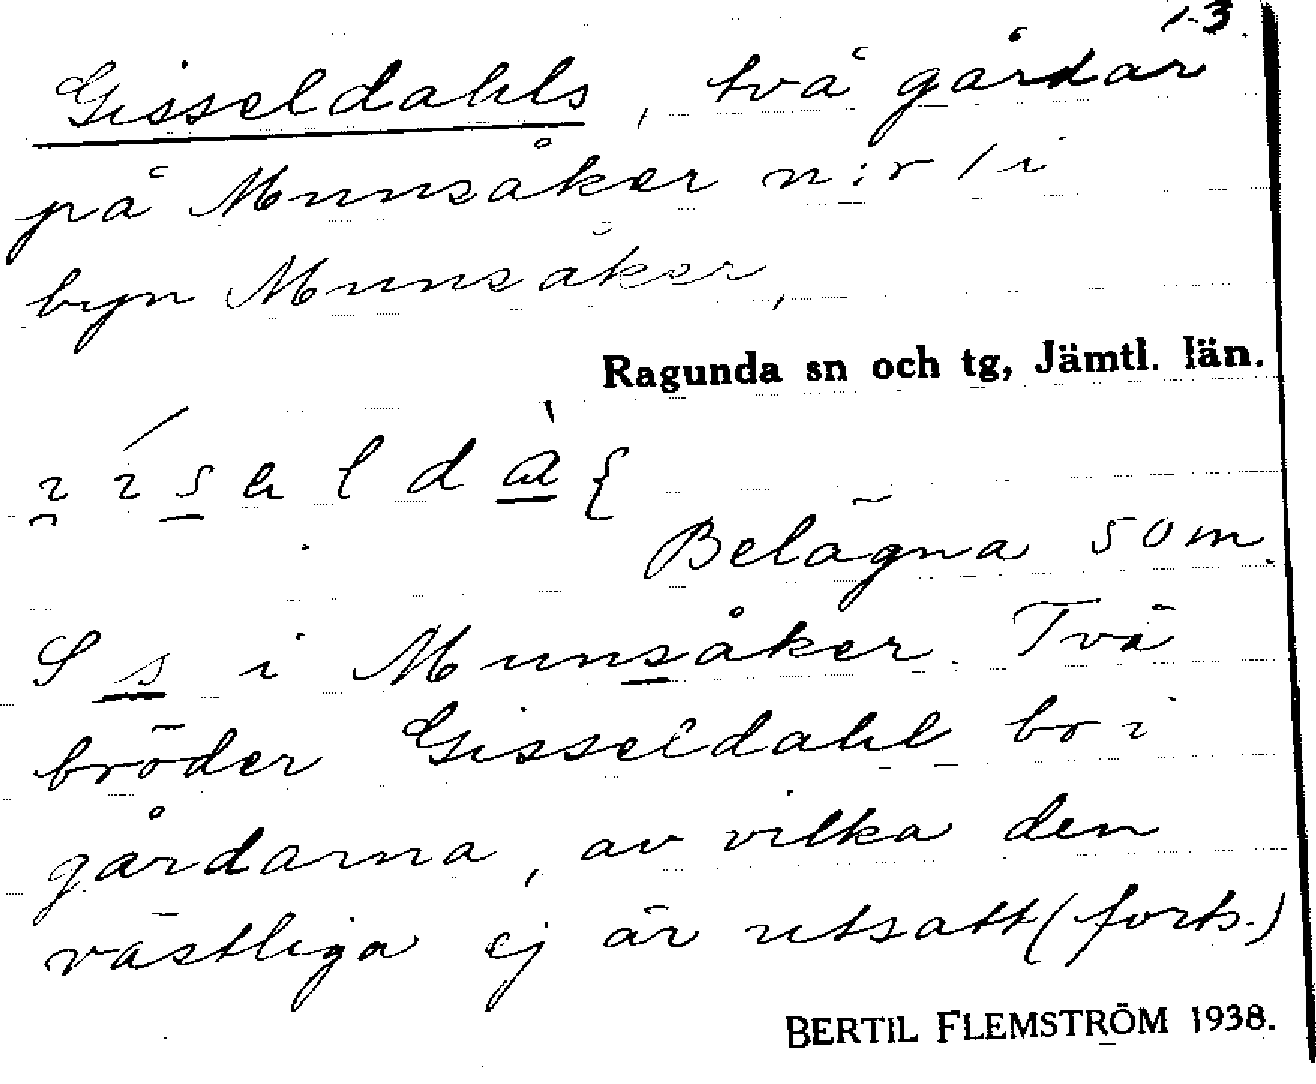 13.
Gisseldahls, två gårdar
på Munsåker n:r 1 i
byn Munsåker,
Ragunda sn och tg, Jämtl. län.
Belägna 50 m.
S s i Munsåker. Två
bröder Gisseldahl bo i
gårdarna, av vilka den
västliga ej är utsatt (forts.)
BERTIL FLEMSTRÖM 1938.